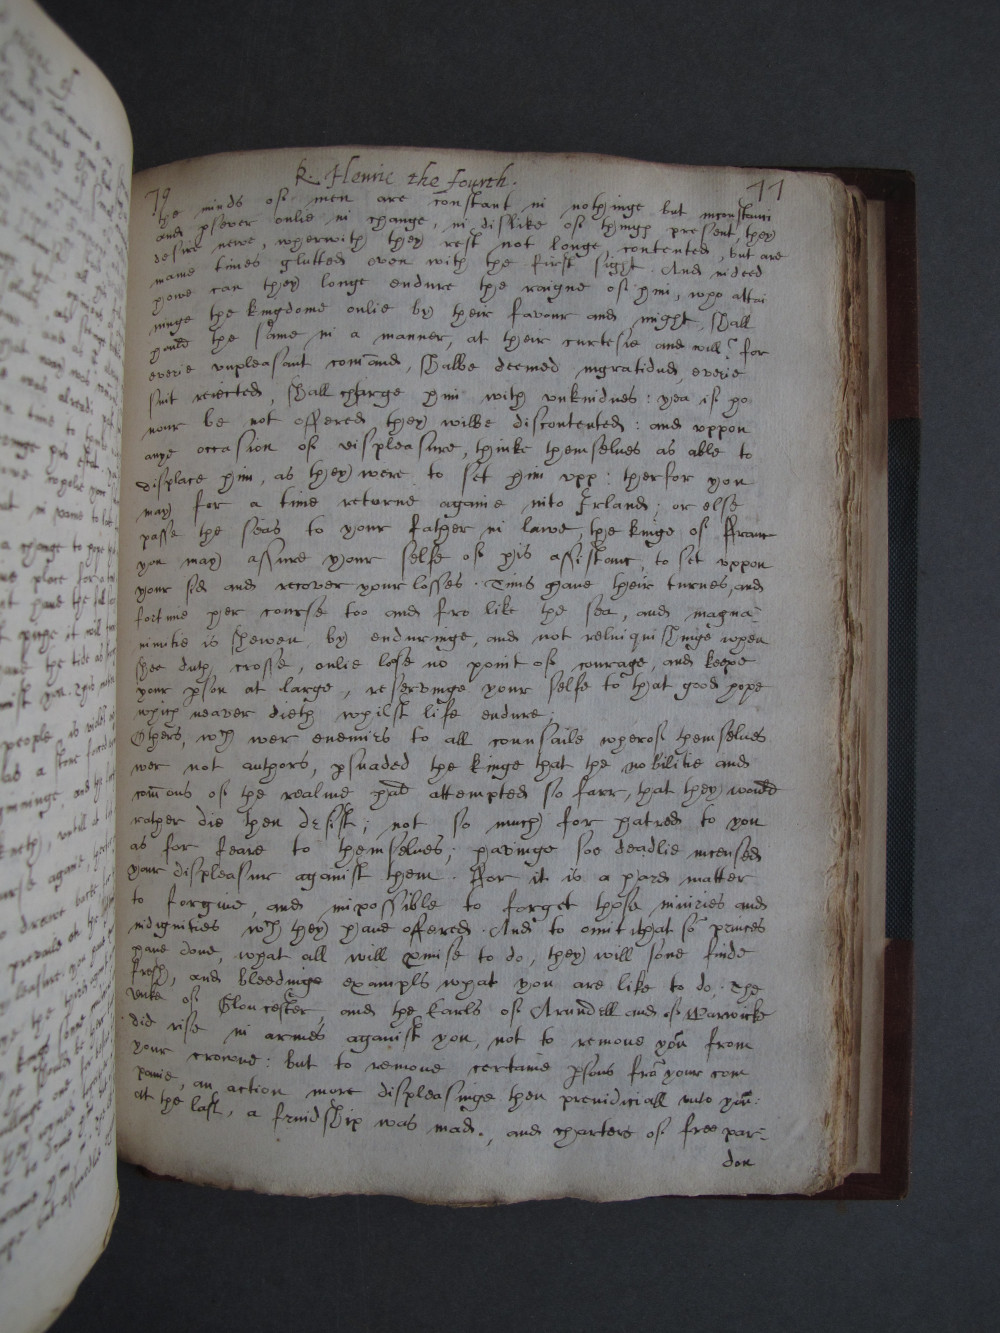 K. Henrie the Fourth.
79 77
the minds of men are constant in nothinge but inconstanci
and psever onlie in change, in dislike of things present, they
desire newe, wherwith they rest not longe contented, but are
manie times glutted even with the first sight. And indeed
howe can they longe endure the raigne of him, who attai
ninge the kingdome onlie by their favour and might, shall
hould the same in a manner, at their curtesie and will: for
everie unpleasant comand, shalbe deemed ingratitud, everie
suit reiected, shall charge him with unkindnes: yea if ho
nour be not offered they wilbe discontented: and uppon
anye occasion of displeasure, thinke themselves as able to
displace him, as they were to set him upp: therfor you
may for a time returne againe into Irland: or else
passe the seas to your father in lawe, the kinge of ffraunce
you may assure your selfe of his assistance, to set uppon
your sid and recover your losses. Tims have their turnes, and
fortune her course too and fro like the sea, and magna-
nimitie is shewen by enduringe, and not relinquishinge when
shee duth crosse, onlie lose no point of courage, and keepe
your pson at large, reservinge your selfe to that good hope
which neaver dieth whilst life endure;
Others, wch wer enemies to all counsaile wherof themselves
wer not authors, psuaded the kinge that the nobilitie and
comons of the realme had attempted so farr, that they would
rather die then desist; not so much for hatred to you
as for feare to themselves; havinge soe deadlie incensed
your displeasure against them. For it is a hard matter
to forgive, and impossible to forget those iniuries and
indignities wch they have offered. And to omit that so princes
have done, what all will pmise to do, they will sone finde
fresh, and bleedinge exampls what you are like to do. The
Duke of Gloucester, and the Earls of Arundell and of Warwicke
did rise in armes against you, not to remove you from
your crowne: but to remove certaine psons fro your com
panie, an action more displeasinge then preiudiciall unto you:
at the last, a frindship was mad., and charters of free par-
don